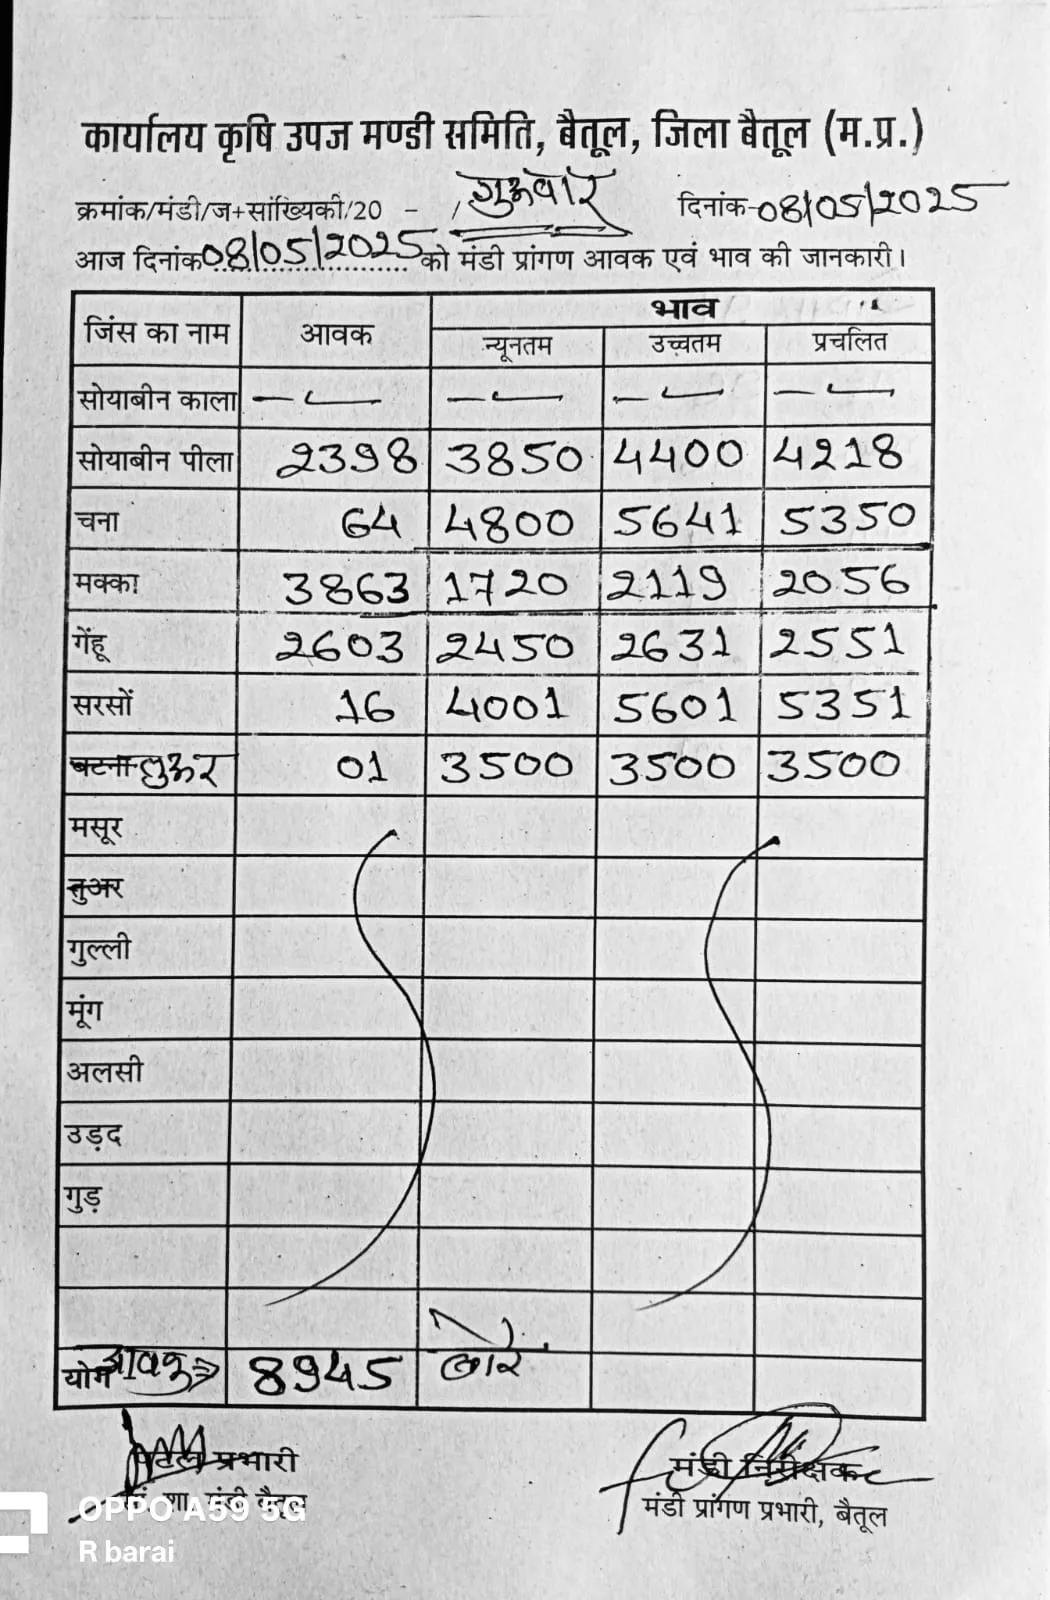 कार्यालय कृषि उपज मण्डी समिति, बैतूल, जिला बैतूल (म.प्र.)
क्रमांक/मंडी/ज+सांख्यिकी/20 - / गुरुवार दिनांक-08/05/2025
आज दिनांक 08/05/2025 को मंडी प्रांगण आवक एवं भाव की जानकारी।
जिंस का नाम आवक भाव
न्यूनतम उच्चतम प्रचलित
सोयाबीन काला — — — —
सोयाबीन पीला 2398 3850 4400 4218
चना 64 4800 5641 5350
मक्का 3863 1720 2119 2056
गेंहू 2603 2450 2631 2551
सरसों 16 4001 5601 5351
बटना तुअर 01 3500 3500 3500
मसूर
तुअर
गुल्ली
मूंग
अलसी
उड़द
गुड़
योग आवक 8945 बोरे
प्रभारी मंडी निरीक्षक
शा. मंडी बैतूल मंडी प्रांगण प्रभारी, बैतूल
OPPO A59 5G
R barai